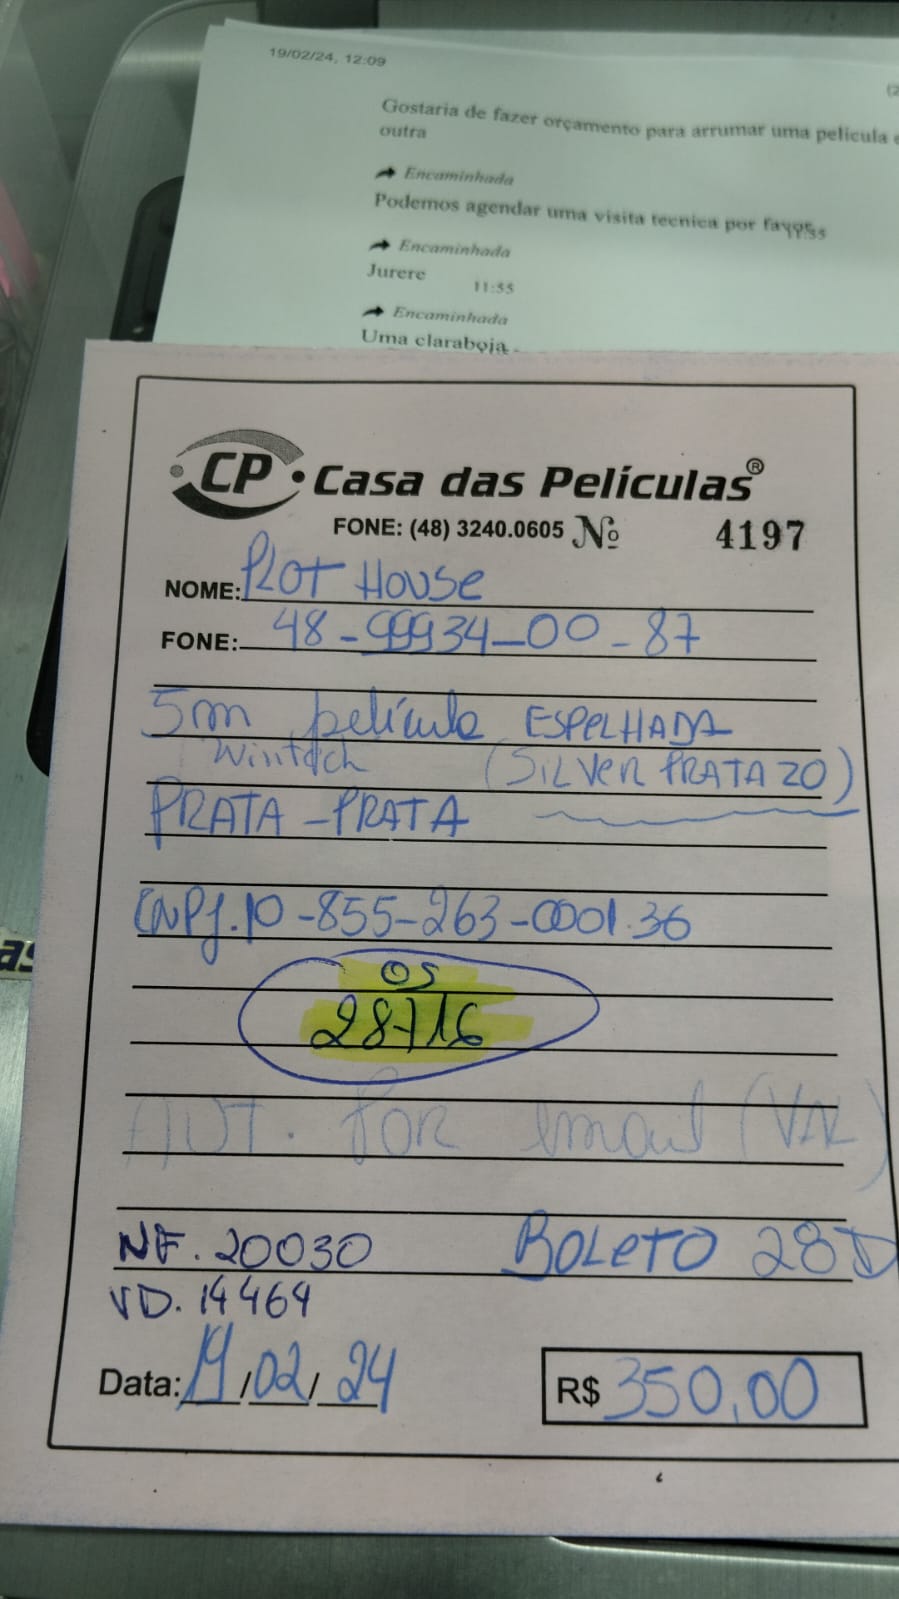 19/02/24, 12:09
Gostaria de fazer orçamento para arrumar uma película
outra
Encaminhada
Podemos agendar uma visita tecnica por favor
11:55
Encaminhada
Jurere 11:55
Encaminhada
Uma claraboia
CP Casa das Películas®
FONE: (48) 3240.0605 Nº 4197
NOME: PLOT HOUSE
FONE: 48-99934-00-87
5m película ESPELHADA
Wintech (SILVER PRATA 20)
PRATA-PRATA
CNPJ.10-855-263-0001.36
OS
28716
AUT. POR email (VAL)
NF. 20030 BOLETO 28D
VD. 14464
Data: 19/02/24 R$ 350,00